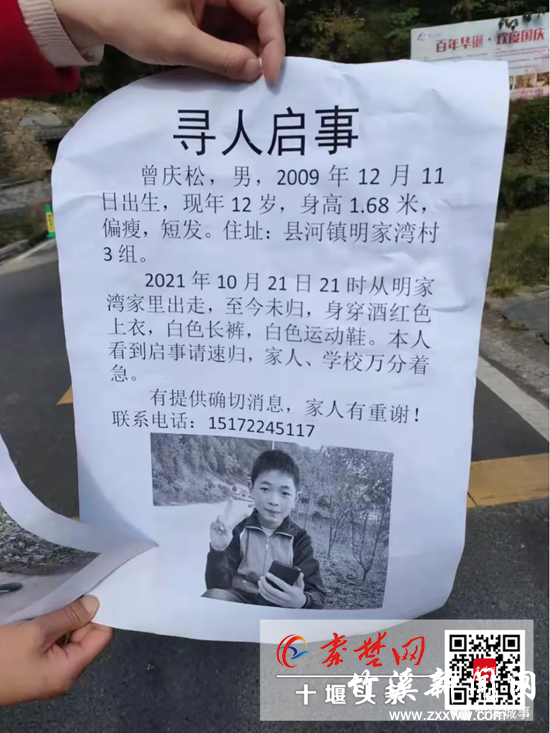 百年华诞·欢度国庆
寻人启事
曾庆松，男，2009 年 12 月 11
日出生，现年 12 岁，身高 1.68 米，
偏瘦，短发。住址：县河镇明家湾村
3 组。
2021 年 10 月 21 日 21 时从明家
湾家里出走，至今未归，身穿酒红色
上衣，白色长裤，白色运动鞋。本人
看到启事请速归，家人、学校万分着
急。
有提供确切消息，家人有重谢！
联系电话：15172245117
秦楚网
十堰头条
竹溪新闻网